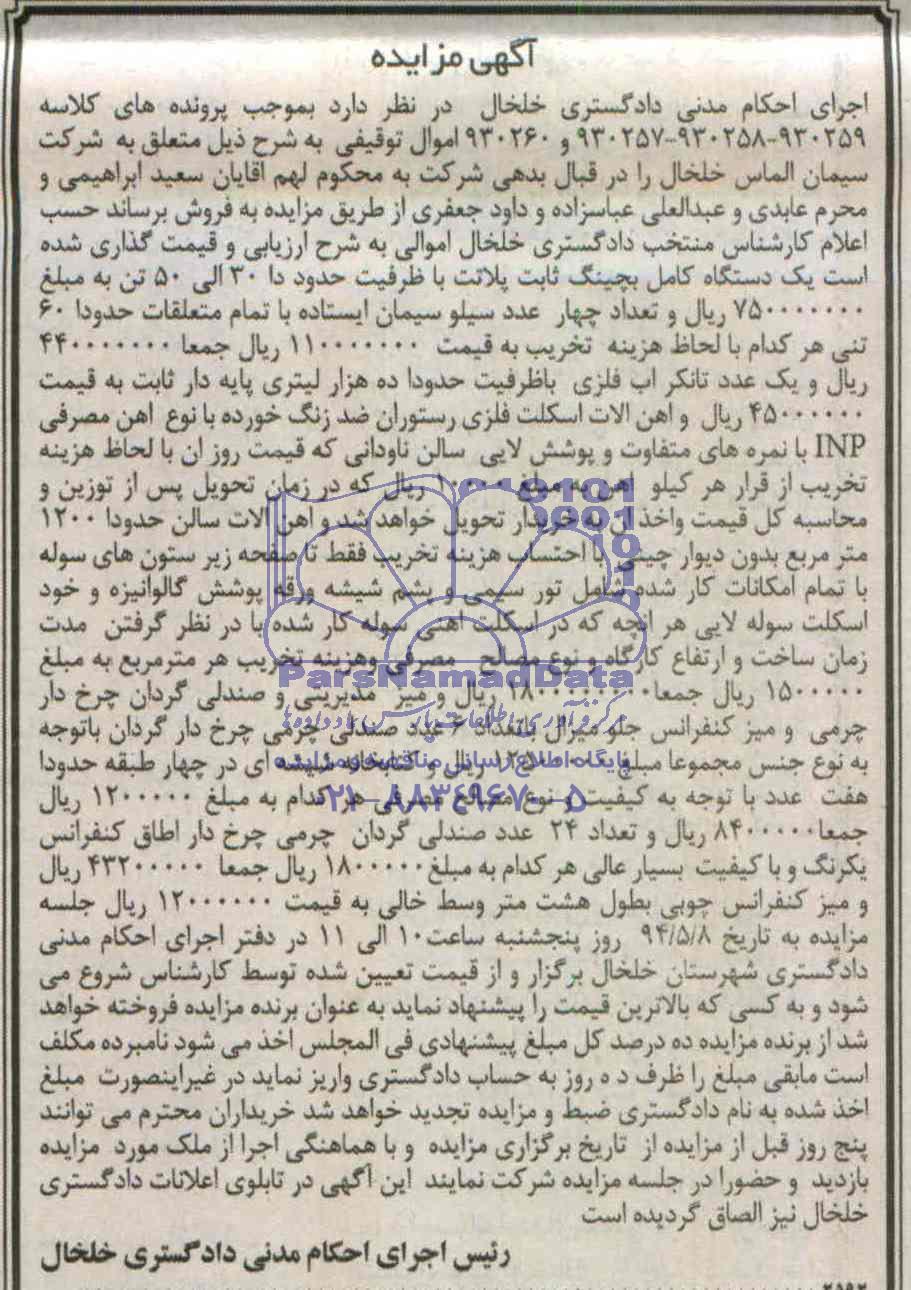 آگهی مزایده
اجرای احکام مدنی دادگستری خلخال در نظر دارد بموجب پرونده های کلاسه
۹۳۰۲۵۹-۹۳۰۲۵۸-۹۳۰۲۵۷ و ۹۳۰۲۶۰ اموال توقیفی به شرح ذیل متعلق به شرکت
سیمان الماس خلخال را در قبال بدهی شرکت به محکوم لهم اقایان سعید ابراهیمی و
محرم عابدی و عبدالعلی عباسزاده و داود جعفری از طریق مزایده به فروش برساند حسب
اعلام کارشناس منتخب دادگستری خلخال اموالی به شرح ارزیابی و قیمت گذاری شده
است یک دستگاه کامل بچینگ ثابت پلانت با ظرفیت حدود دا ۳۰ الی ۵۰ تن به مبلغ
۷۵۰۰۰۰۰۰۰ ریال و تعداد چهار عدد سیلو سیمان ایستاده با تمام متعلقات حدودا ۶۰
تنی هر کدام با لحاظ هزینه تخریب به قیمت ۱۱۰۰۰۰۰۰۰ ریال جمعا ۴۴۰۰۰۰۰۰۰
ریال و یک عدد تانکر اب فلزی باظرفیت حدودا ده هزار لیتری پایه دار ثابت به قیمت
۴۵۰۰۰۰۰۰ ریال و اهن الات اسکلت فلزی رستوران ضد زنگ خورده با نوع اهن مصرفی
INP با نمره های متفاوت و پوشش لایی سالن ناودانی که قیمت روز ان با لحاظ هزینه
تخریب از قرار هر کیلو اهن به مبلغ ۱۰۰۰۰ ریال که در زمان تحویل پس از توزین و
محاسبه کل قیمت واخذ ان به خریدار تحویل خواهد شد و اهن الات سالن حدودا ۱۲۰۰
متر مربع بدون دیوار چینی با احتساب هزینه تخریب فقط تا صفحه زیر ستون های سوله
با تمام امکانات کار شده شامل تور سیمی و پشم شیشه ورقه پوشش گالوانیزه و خود
اسکلت سوله لایی هر انچه که در اسکلت اهنی سوله کار شده با در نظر گرفتن مدت
زمان ساخت و ارتفاع کارگاه و نوع مصالح مصرفی وهزینه تخریب هر مترمربع به مبلغ
ParsNamadData
۱۵۰۰۰۰۰ ریال جمعا ۱۸۰۰۰۰۰۰۰۰ ریال و میز مدیریتی و صندلی گردان چرخ دار
چرمی و میز کنفرانس جلو میزال باتعداد ۶ عدد صندلی چرمی چرخ دار گردان باتوجه
پایگاه اطلاع رسانی مناقصه و مزایده
به نوع جنس مجموعا مبلغ ریال و کتابخانه شیشه ای در چهار طبقه حدودا
۰۲۱-۸۸۳۴۹۶۷۰-۵
هفت عدد با توجه به کیفیت و نوع مصالح مصرفی هر کدام به مبلغ ۱۲۰۰۰۰۰ ریال
جمعا ۸۴۰۰۰۰۰ ریال و تعداد ۲۴ عدد صندلی گردان چرمی چرخ دار اطاق کنفرانس
یکرنگ و با کیفیت بسیار عالی هر کدام به مبلغ ۱۸۰۰۰۰۰ ریال جمعا ۴۳۲۰۰۰۰۰ ریال
و میز کنفرانس چوبی بطول هشت متر وسط خالی به قیمت ۱۲۰۰۰۰۰۰ ریال جلسه
مزایده به تاریخ ۹۴/۵/۸ روز پنجشنبه ساعت ۱۰ الی ۱۱ در دفتر اجرای احکام مدنی
دادگستری شهرستان خلخال برگزار و از قیمت تعیین شده توسط کارشناس شروع می
شود و به کسی که بالاترین قیمت را پیشنهاد نماید به عنوان برنده مزایده فروخته خواهد
شد از برنده مزایده ده درصد کل مبلغ پیشنهادی فی المجلس اخذ می شود نامبرده مکلف
است مابقی مبلغ را ظرف د ه روز به حساب دادگستری واریز نماید در غیراینصورت مبلغ
اخذ شده به نام دادگستری ضبط و مزایده تجدید خواهد شد خریداران محترم می توانند
پنج روز قبل از مزایده از تاریخ برگزاری مزایده و با هماهنگی اجرا از ملک مورد مزایده
بازدید و حضورا در جلسه مزایده شرکت نمایند این آگهی در تابلوی اعلانات دادگستری
خلخال نیز الصاق گردیده است
رئیس اجرای احکام مدنی دادگستری خلخال